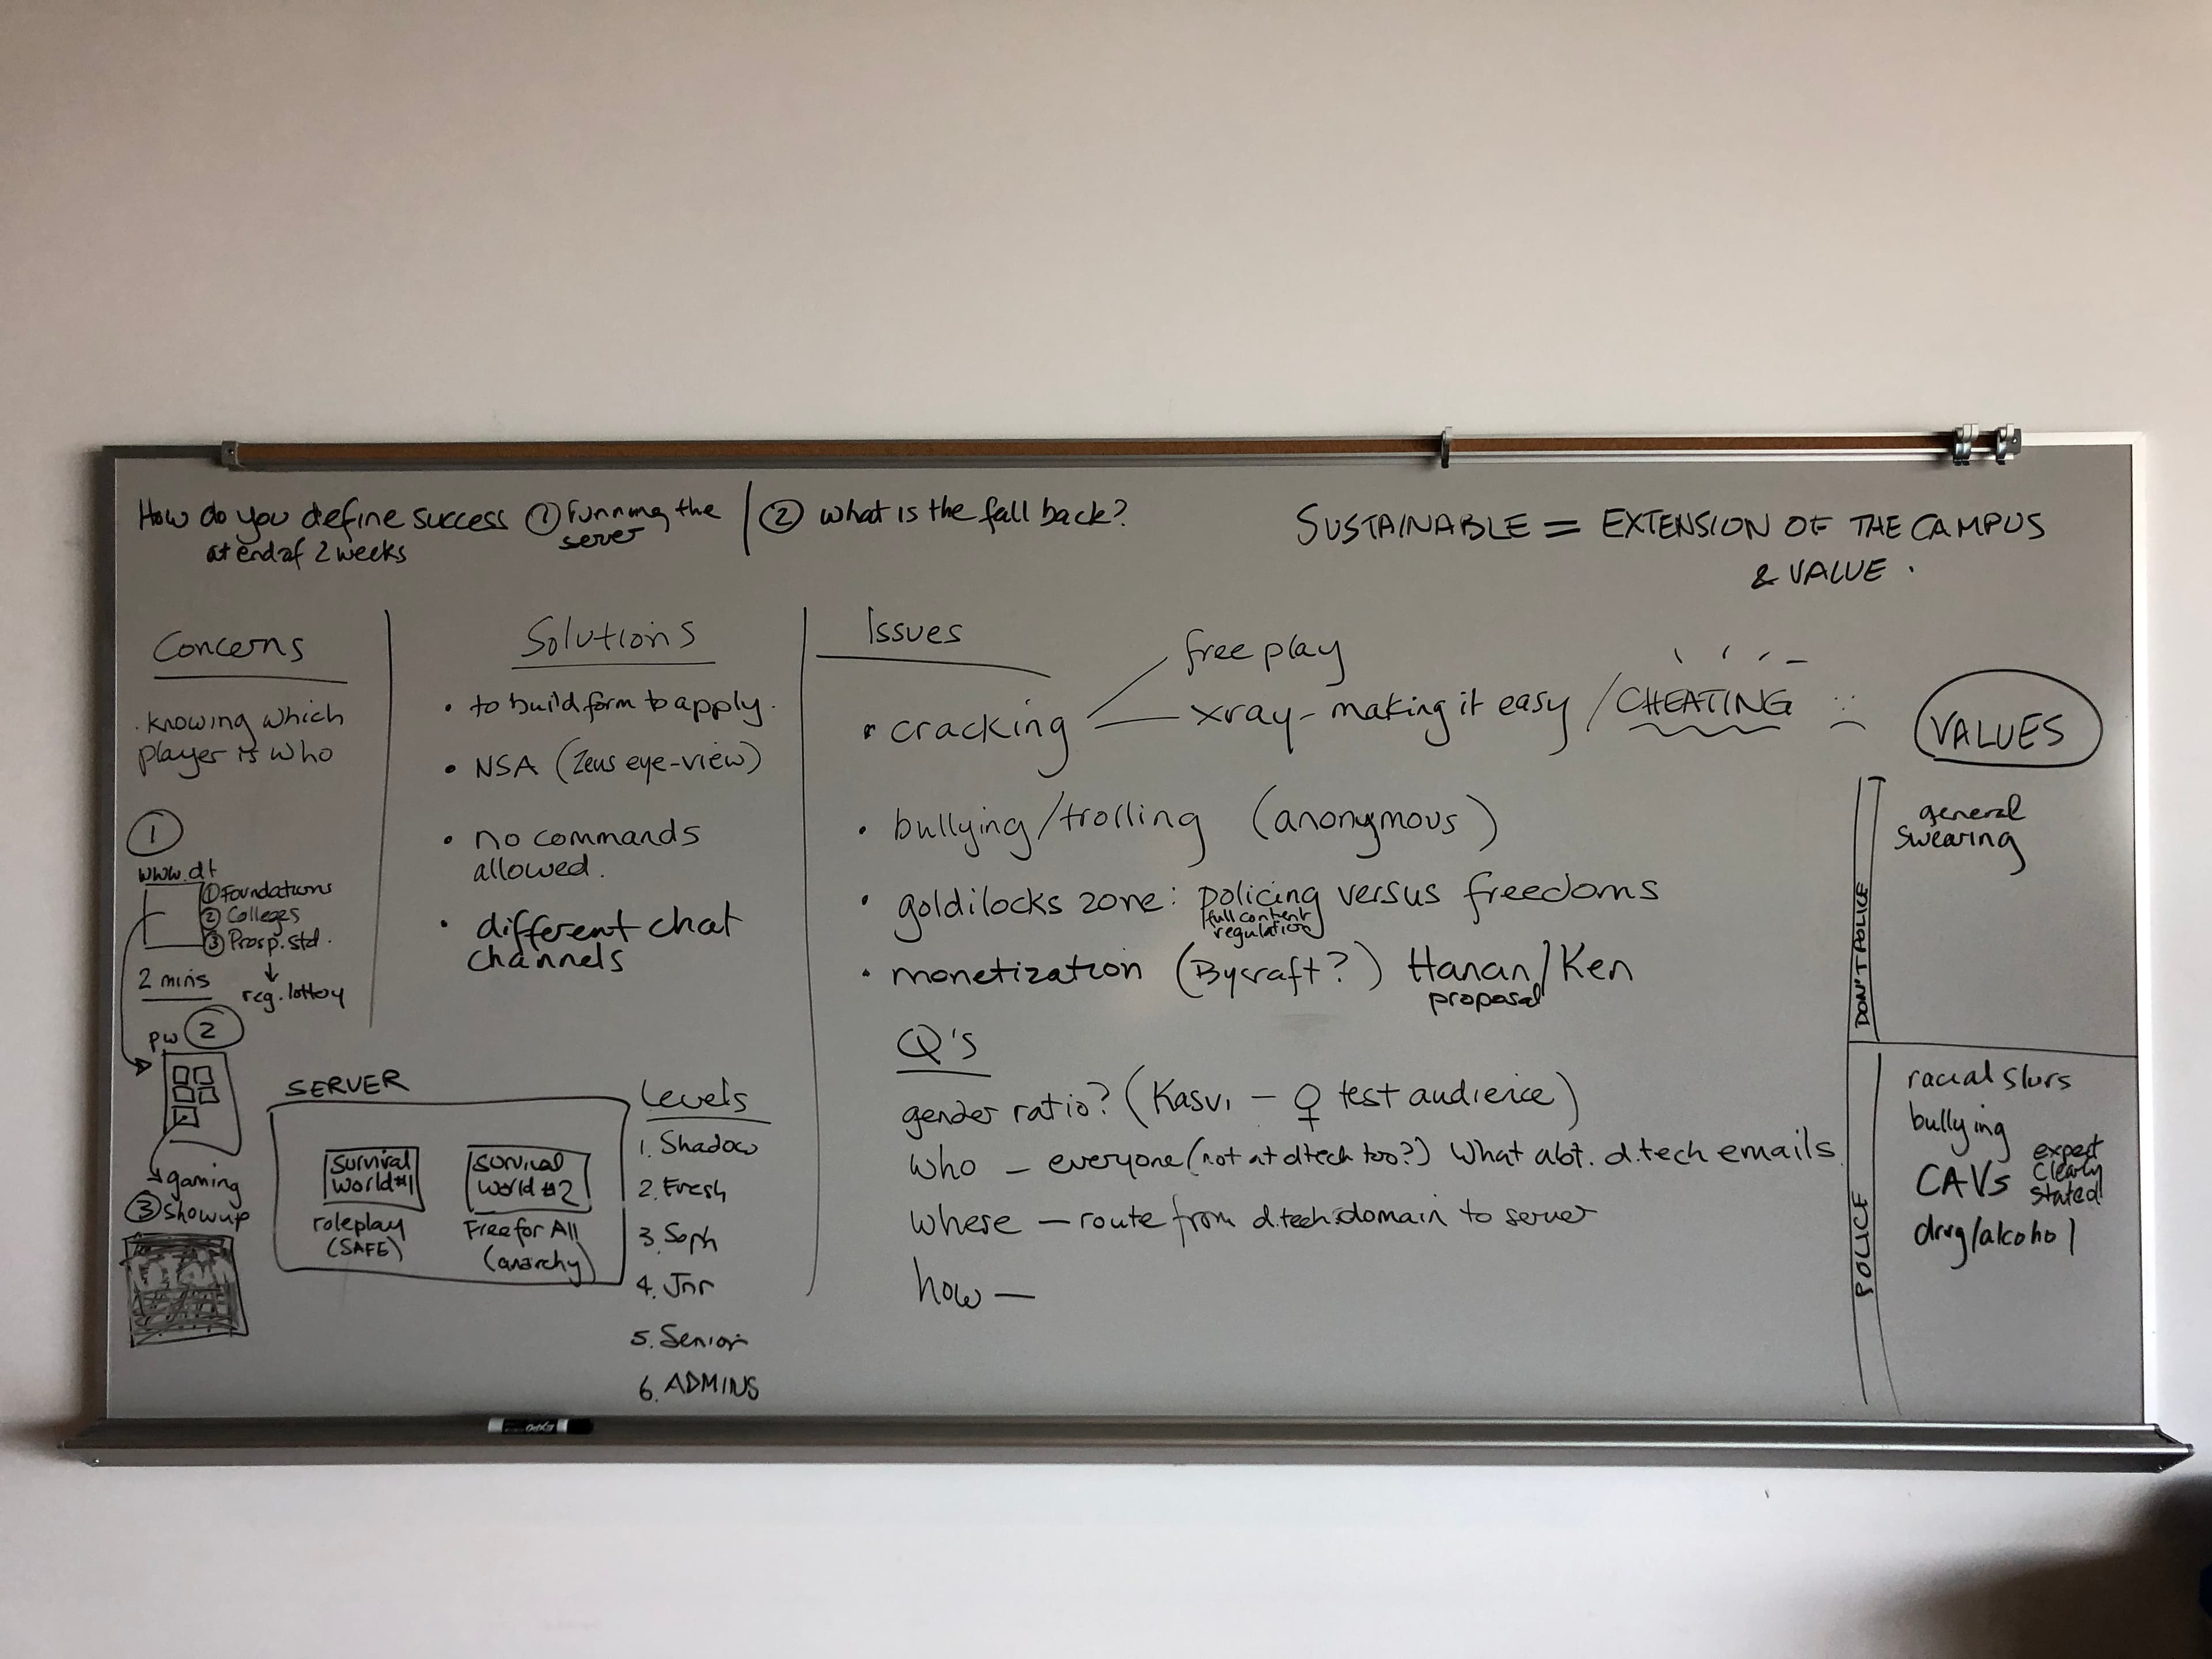 How do you define success ① running the server
at end of 2 weeks
② what is the fall back?
SUSTAINABLE = EXTENSION OF THE CAMPUS
& VALUE.
Concerns
. knowing which
player is who
①
www.dt
① Foundations
② Colleges
③ Prosp. std.
2 mins
reg. lottery
pw ②
gaming
③ show up
Solutions
• to build form to apply.
• NSA (Zeus eye-view)
• no commands
allowed.
• different chat
channels
SERVER
Survival
World #1
roleplay
(SAFE)
Survival
World #2
Free for All
(anarchy)
Levels
1. Shadow
2. Fresh
3. Soph
4. Jnr
5. Senior
6. ADMINS
Issues
• cracking
free play
xray - making it easy / CHEATING
• bullying/trolling (anonymous)
• goldilocks zone: policing versus freedoms
full content
regulation
• monetization (Bycraft?) Hanan/Ken
proposal
Q's
gender ratio? (Kasvi - ♀ test audience)
who - everyone (not at dtech too?) What abt. d.tech emails
where - route from d.tech domain to server
how -
VALUES
DON'T POLICE
general
swearing
POLICE
racial slurs
bullying
CAVs
expect
clearly
stated!
drug/alcohol
EXPO